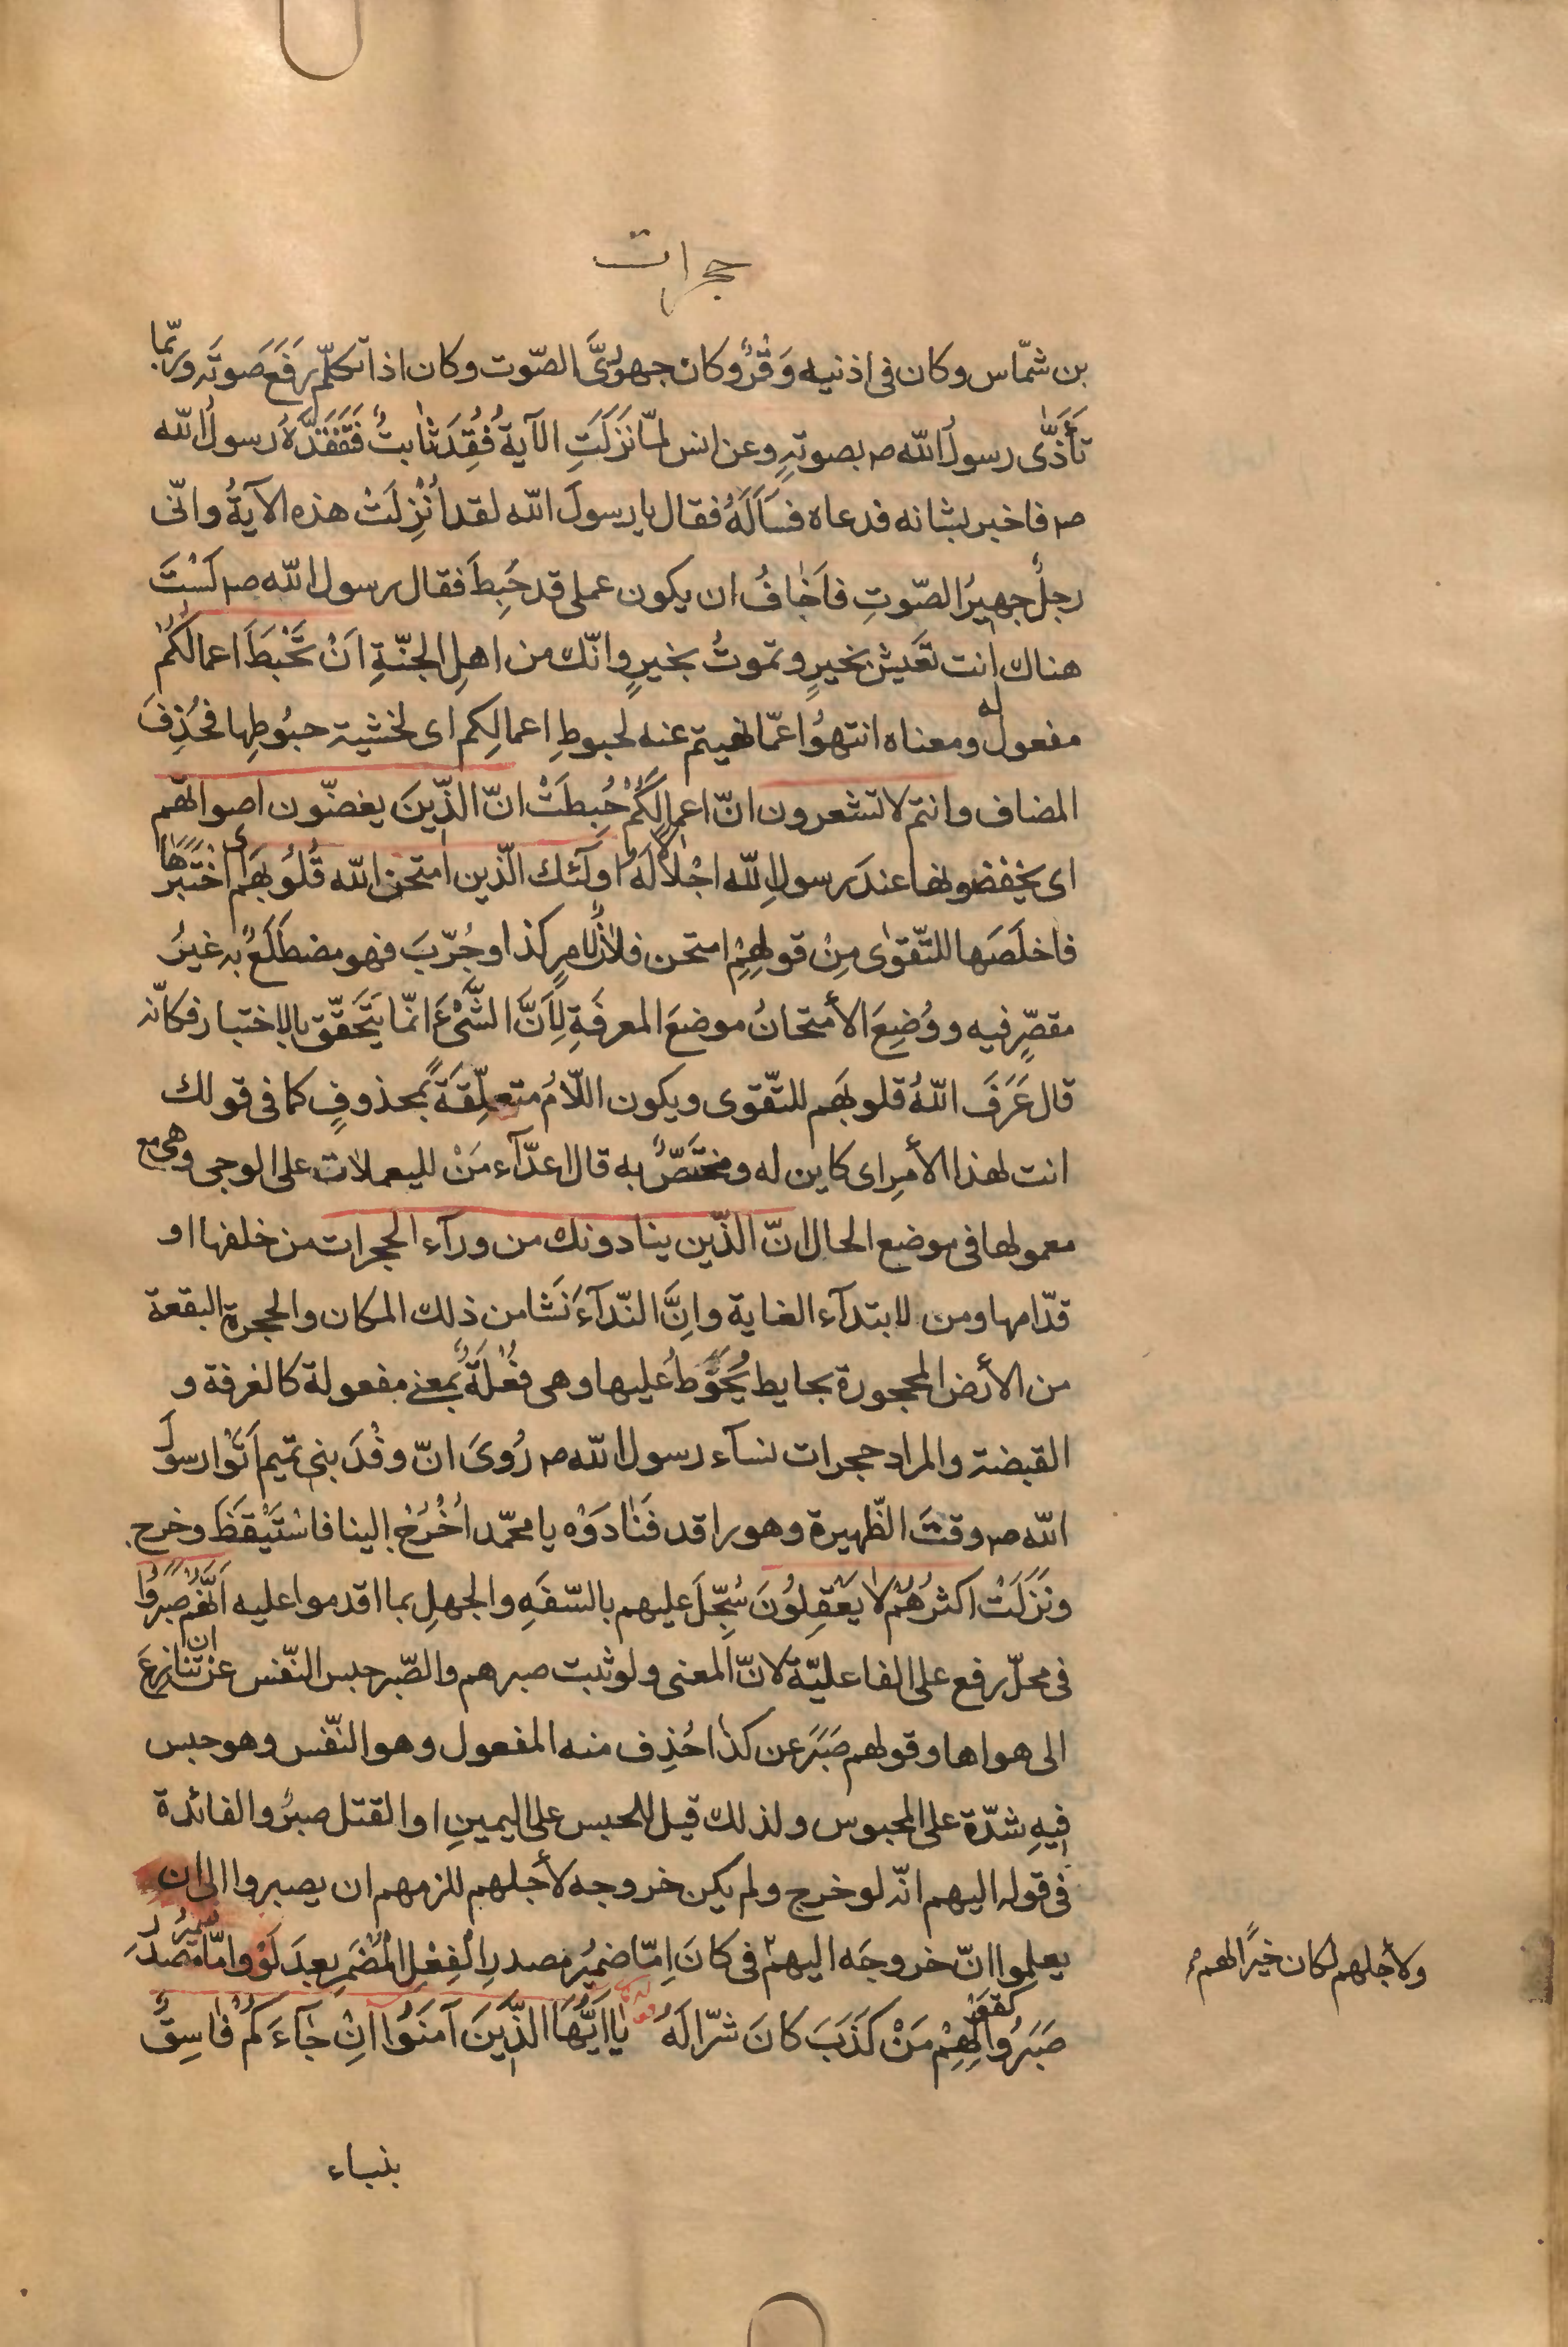 حجرات
بن شمّاس وكان فى اذنيه وَقْرٌ وكان جهوِرىَّ الصّوت وكان اذا تكلّم رَفَعَ صَوتَه وربّما
تَأَذّٰى رسولُ اللّه ص بصوتِهِ وعن انس لمّا نَزَلَتِ الآيةُ فُقِدَ ثٰابتٌ فَتَفَقَّدَهُ رسولُ اللّه
ص فاخبر بشانه فدعاه فسَاَلَهُ فقال يا رسولَ اللّه لقد اُنْزِلَتْ هذه الآيةُ وانّى
رجلٌ جهيرُ الصّوتِ فاَخٰافُ ان يكون عملى قد حَبِطَ فقال رسول اللّه ص لَسْتَ
هناك انت تَعَيش بخيرٍ وتموتُ بخيرٍ وانّك من اهلِ الجنّةِ اَنْ تَحْبَطَ اعمالُكُمْ
مفعول له ومعناه انتهوُا عمّا نهيتم عنه لحبوطِ اعمالِكم اى لخشية حبُوطِها فحُذِفَ
المضاف وانتم لا تشعرون انّ اعمالَكُمْ حُبِطَتْ انّ الّذينَ يغضّون اصواتهم
اى يخفضونها عندَ رسولِ اللّه اجْلالاً لَهُ اولٓئك الّذين امتحن اللّه قُلُوبَهُم اى اخْتَبَرَهٰا
فاخلَصَها للتّقوٰى مِنْ قولِهِمْ امتحن فلانٌ لامرٍ كذا وجُرّبَ فهو مضطَلَعٌ بِه غيرُ
مقصّرٍ فيه ووُضِعَ الأمتحانُ موضعَ المعرفَةِ لِاَنَّ الشَّىْءَ انمّا يَتَحَقّق بالاختبار فكانّه
قال عَرَفَ اللّهُ قلوبَهم للتّقوى ويكون اللّامُ متعلّقَةً بمحذوفٍ كما فى قولك
انت لهذا الأمرِ اى كاين له ومختَصٌّ به قال اعدّآء مَنْ لليعملات على الوجى وهى مع
معمولها فى موضع الحال انّ الّذين ينادونك من ورآء الحجرات من خلفها او
قدّامها ومن لابتدآء الغاية وانَّ النّدآءَ نَشَا من ذلك المكان والحجرة البقعة
من الأرض المحجورة بحايط يُحَوَّطُ عليها وهى فُعْلَةٌ بمعنى مفعولة كالغرفة و
القبضة والمراد حجرات نسآء رسول اللّه ص رُوىَ انّ وفْدَ بنى تميم اَتَوْا رسولَ
اللّه ص وقتَ الظّهيرة وهو راقد فَنٰادَوْه يا محمّد اُخْرُجْ الينا فاسْتَيْقَظَ وخرج
ونَزَلَتْ اكثرُهُمْ لا يَعْقِلُونَ سُجّلَ عليهم بالسّفَهِ والجهلِ بما اقدموا عليه اَنَّهُمْ صَبَرُوا
فى محلّ رفع على الفاعليّة لانّ المعنى ولو ثبت صبرهم والصّبر حبس النّفس عن ان تنازعَ
الى هواها وقولهم صَبَرَ عن كذا حُذِف منه المفعول وهو النّفس وهو حبس
فيهِ شدّة على المحبوس ولذلك قيل للحبس على اليمينِ او القتل صبرٌ والفائدة
فى قوله اليهم انّه لو خرج ولم يكن خروجه لأجلهم للزمهم ان يصبروا الى ان
يعلموا انّ خروجَه اليهم فى كانَ اِمّا ضميرُ مصدرِ الْفِعْلِ الْمُضْمَرِ بعدَ لَوْ وامّا ضميرُ مصدرَ
ولأجلهم لكان خيرًا لهم
صَبَرُوا كقَوْلِهِمْ مَنْ كَذَبَ كانَ شرّا لَهُ يٰا اَيُّهَا الَّذِينَ آمَنُوا اِنْ جٰآءَكُمْ فٰاسِقٌ
بنباء